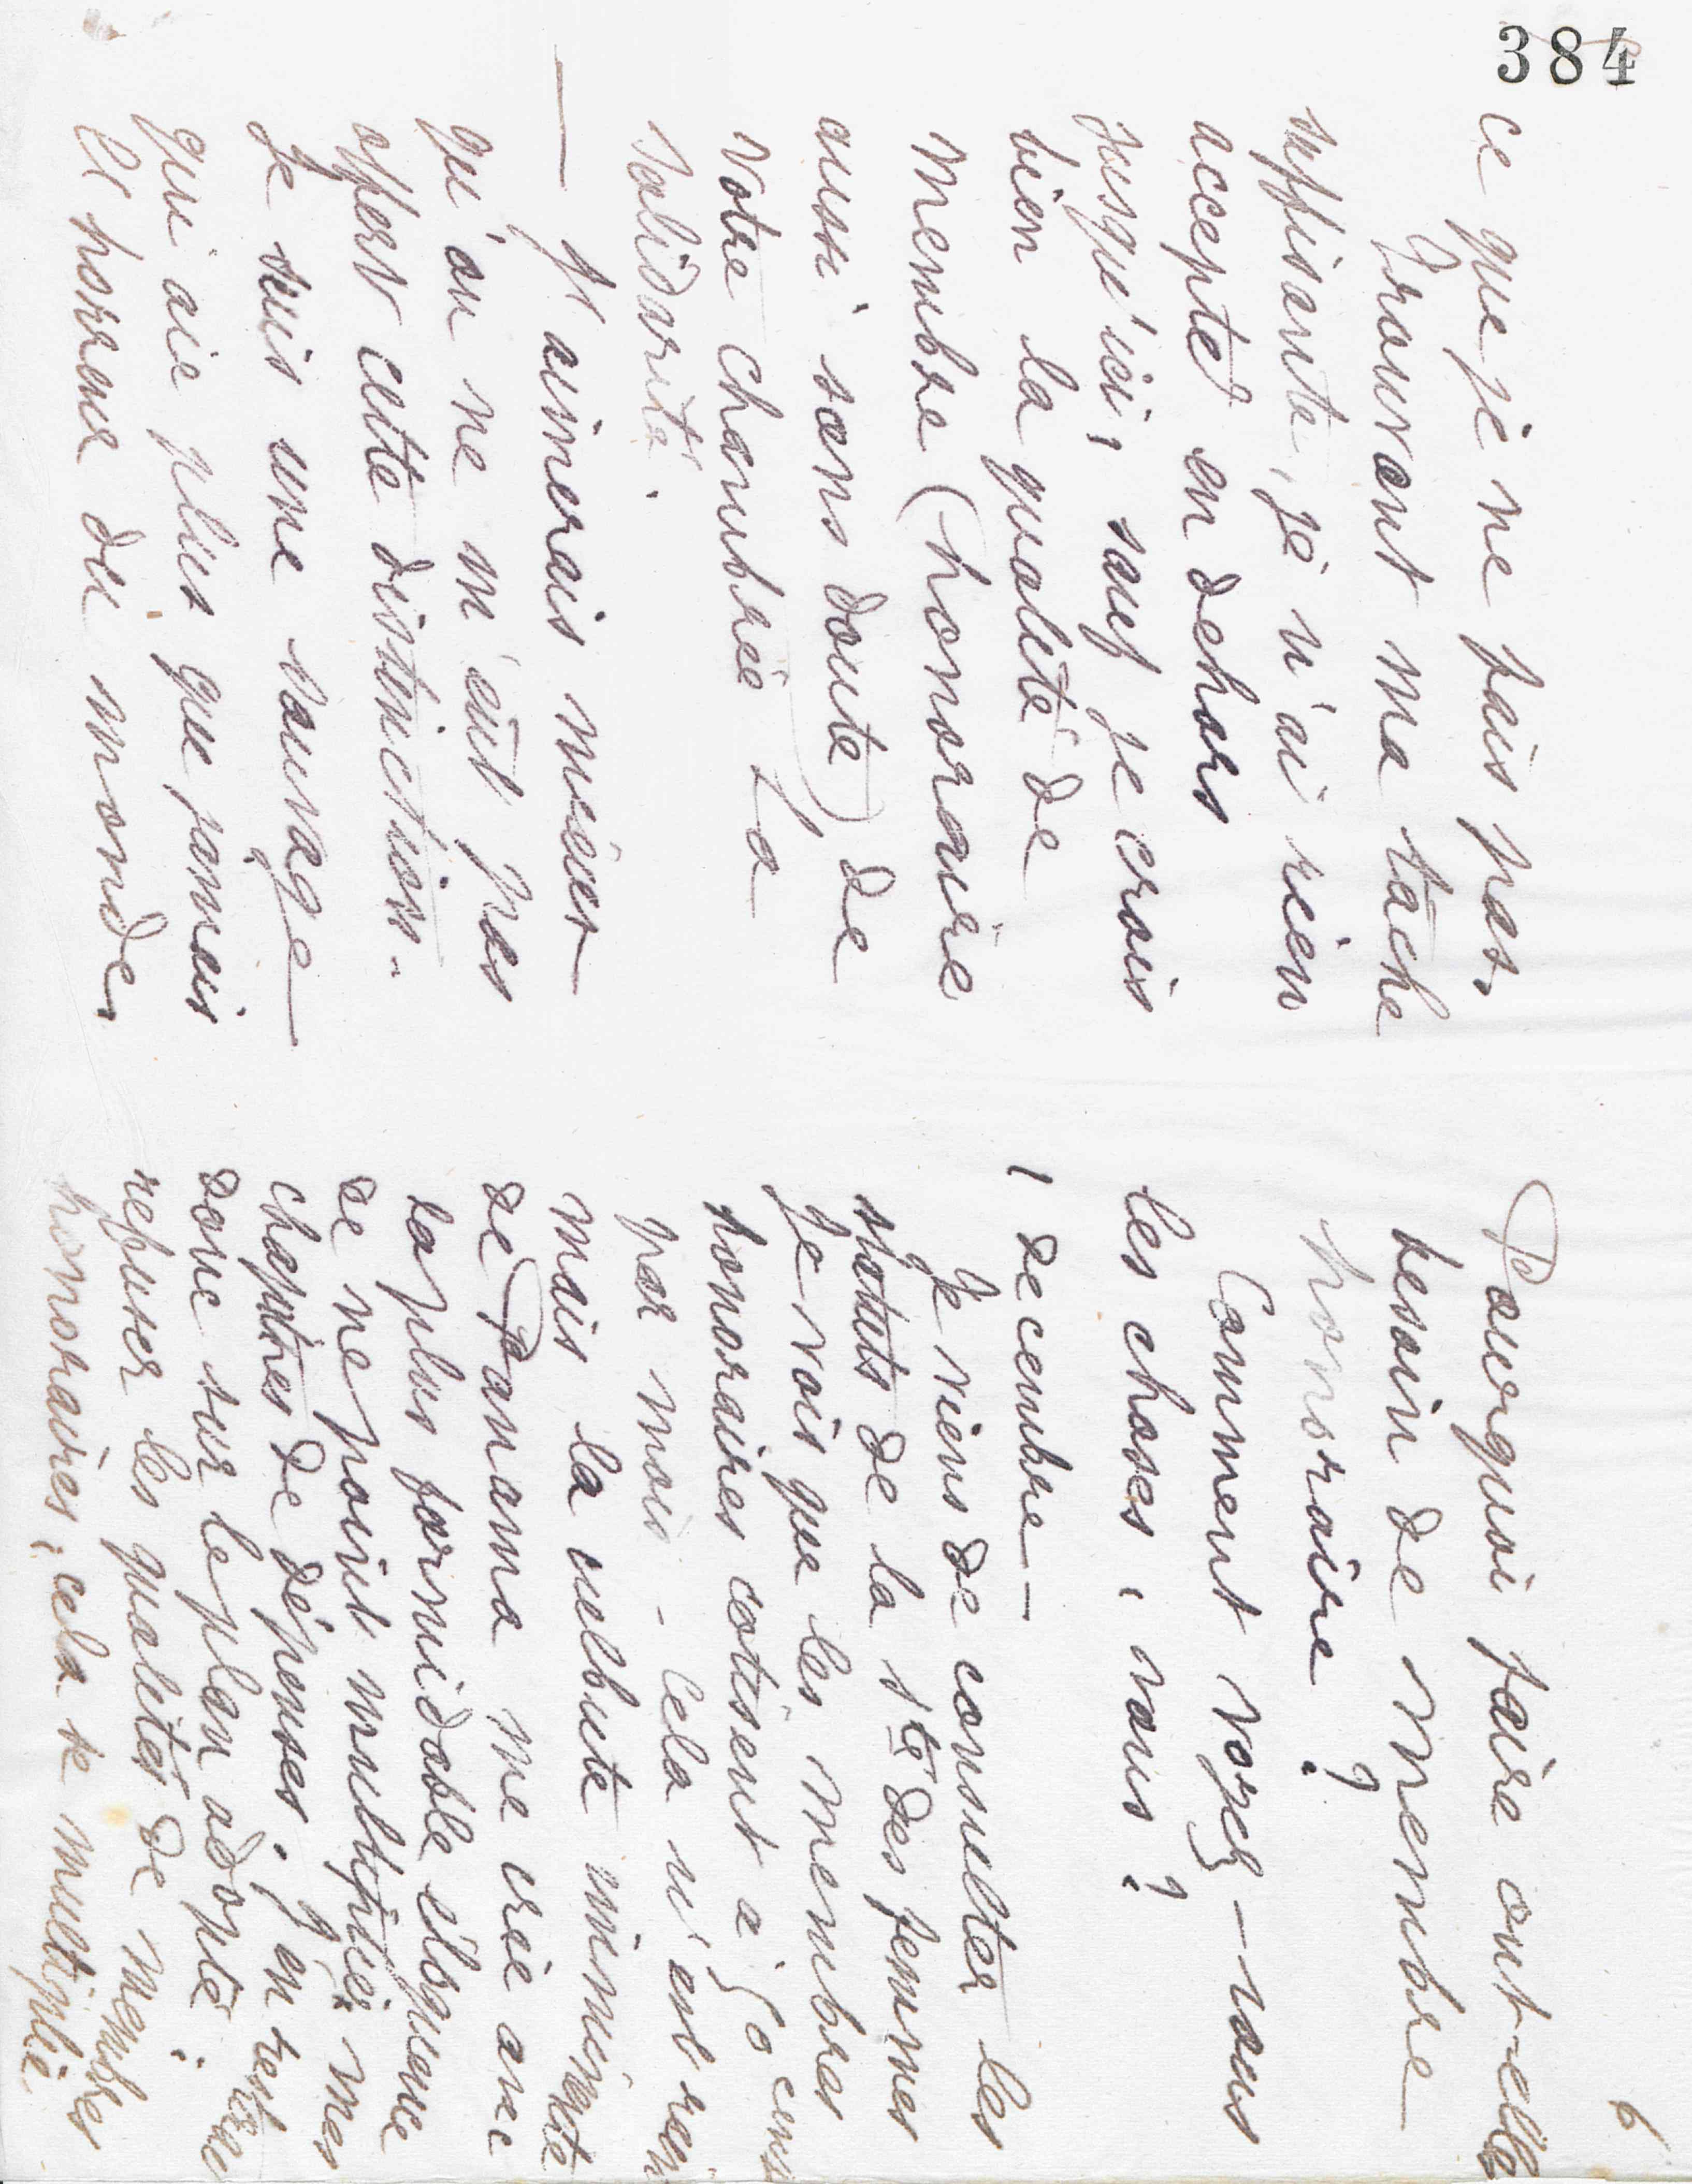 384
ce que je ne fais pas.
Trouvant ma tache
suffisante, je n'ai rien
accepté en dehors
jusqu'ici, sauf je crois
bien la qualité de
membre (honoraire
aussi sans doute) de
votre chambrée La
Solidarité.
— J'aimerais mieux
qu'on ne m'eut pas
offert cette distinction.
Je suis une sauvage
qui aie plus que jamais
l'horreur du monde.
6
Pourquoi faire ont-elles
besoin de membre
honoraire ?
Comment voyez-vous
les choses, vous ?
1 decembre -
Je viens de consulter les
statuts de la sté des femmes
Je vois que les membres
honoraires cotisent a 50 cent
par mois - Cela n'est rien
mais la culbute imminente
de Panama me crie avec
la plus formidable eloquence
de ne point multiplier mes
chapitres de dépenses. J'en
donc sur le plan adopté :
refuser les qualités de membres
honoraires, cela se multiplie.